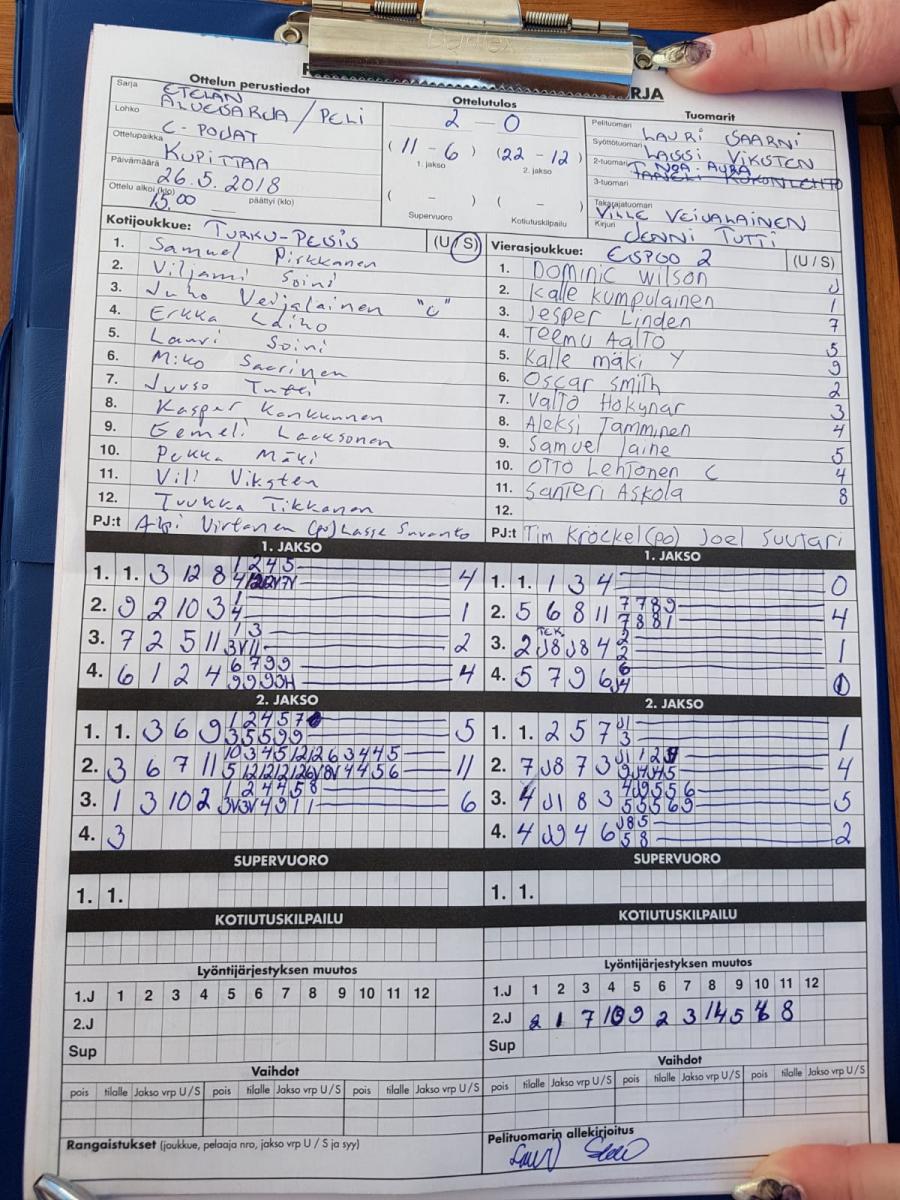 RJA
Ottelun perustiedot
Sarja ETELÄN
Lohko ALUESARJA / PELI
C-POJAT
Ottelupaikka KUPITTAA
Päivämäärä 26.5.2018
Ottelu alkoi (klo) 15.00 päättyi (klo)
Ottelutulos
2 - 0
(11 - 6) (22 - 12)
1. jakso 2. jakso
( - ) ( - )
Supervuoro Kotiutuskilpailu
Tuomarit
Pelituomari LAURI SAARNI
Syöttötuomari LASSI VIKSTEN
2-tuomari
3-tuomari
Takarajatuomari VILLE VEIJALAINEN
Kirjuri JENNI TUTTI
Kotijoukkue: TURKU-PESIS (U/S)
1. Samuel Pirkkanen
2. Viljami Soini
3. Juho Veijalainen "C"
4. Erkka Laiho
5. Lauri Soini
6. Miko Saarinen
7. Juuso Tutti
8. Kasper Konkkunen
9. Eemeli Laaksonen
10. Pekka Mäki
11. Vili Viksten
12. Tuukka Tikkanen
PJ:t Aki Virtanen (po) Lasse Suvanto
Vierasjoukkue: ESPOO 2 (U/S)
1. Dominic Wilson J
2. Kalle Kumpulainen 1
3. Jesper Linden 7
4. Teemu Aalto 5
5. Kalle mäki Y 9
6. Oscar Smith 2
7. Valto Hokynar 3
8. Aleksi Tamminen 4
9. Samuel Laine 5
10. OTTO Lehtonen C 4
11. Santeri Askola 8
12.
PJ:t Tim Kröckel (po) Joel Suutari
1. JAKSO
1. 1. 3 12 8 1 2 4 5 4
2. 9 2 10 3 1 4 1
3. 7 2 5 11 1 3 2
4. 6 1 2 4 6 7 9 9 4
1. JAKSO
1. 1. 1 3 4 0
2. 5 6 8 11 7 7 8 9 7 8 8 1 4
3. 2 J8 J8 4 2 2 1
4. 5 7 9 6 6 J4
2. JAKSO
1. 1. 3 6 9 1 2 4 5 7 3 5 5 9 9 5
2. 3 6 7 11 11
3. 1 3 10 2 1 2 4 4 5 8 6
4. 3
2. JAKSO
1. 1. 2 5 7 J1 3 1
2. 7 J8 7 3 4
3. 4 J1 8 3 5
4. 4 J9 4 6 J8 5 5 8 2
SUPERVUORO
1. 1.
SUPERVUORO
1. 1.
KOTIUTUSKILPAILU
KOTIUTUSKILPAILU
Lyöntijärjestyksen muutos
1.J 1 2 3 4 5 6 7 8 9 10 11 12
2.J
Sup
Lyöntijärjestyksen muutos
1.J 1 2 3 4 5 6 7 8 9 10 11 12
2.J
Sup
Vaihdot
pois tilalle Jakso vrp U/S pois tilalle Jakso vrp U/S pois tilalle Jakso vrp U/S
Vaihdot
pois tilalle Jakso vrp U/S pois tilalle Jakso vrp U/S pois tilalle Jakso vrp U/S
Rangaistukset (joukkue, pelaaja nro, jakso vrp U / S ja syy)
Pelituomarin allekirjoitus